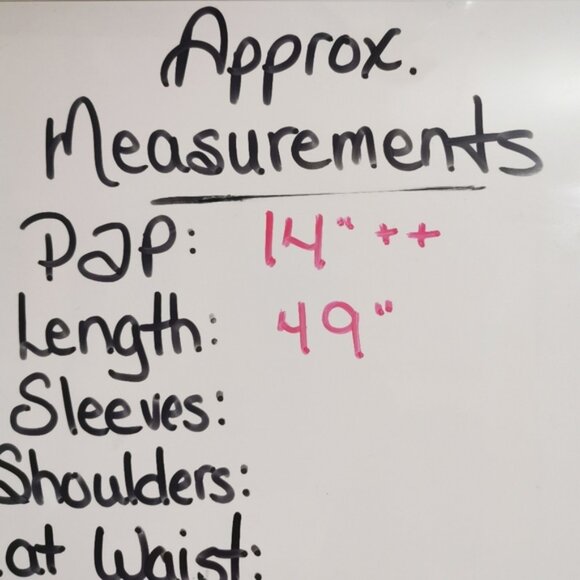 Approx.
Measurements
PaP: 14" ++
Length: 49"
Sleeves:
Shoulders:
at Waist: